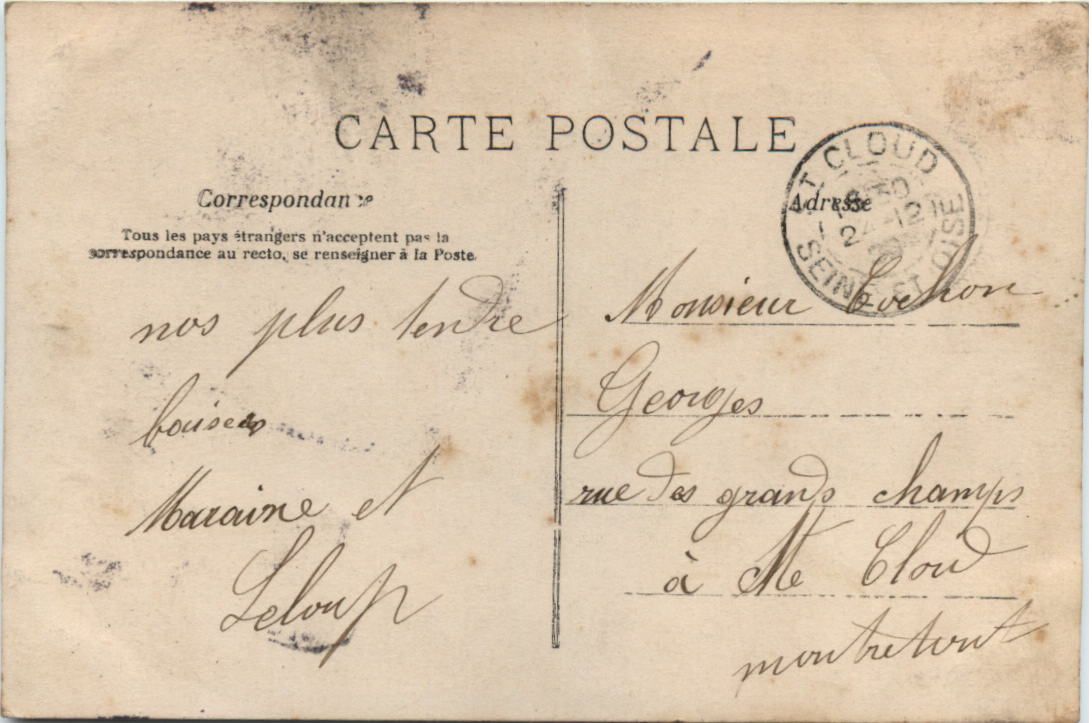 CARTE POSTALE
Correspondance
Tous les pays étrangers n'acceptent pas la
correspondance au recto, se renseigner à la Poste.
nos plus tendre
baisers
Maraine et
Leloup
Adresse
ST CLOUD
24 -12
SEINE ET OISE
Monsieur Cochon
Georges
rue des grands champs
à Ste Cloud
montretout